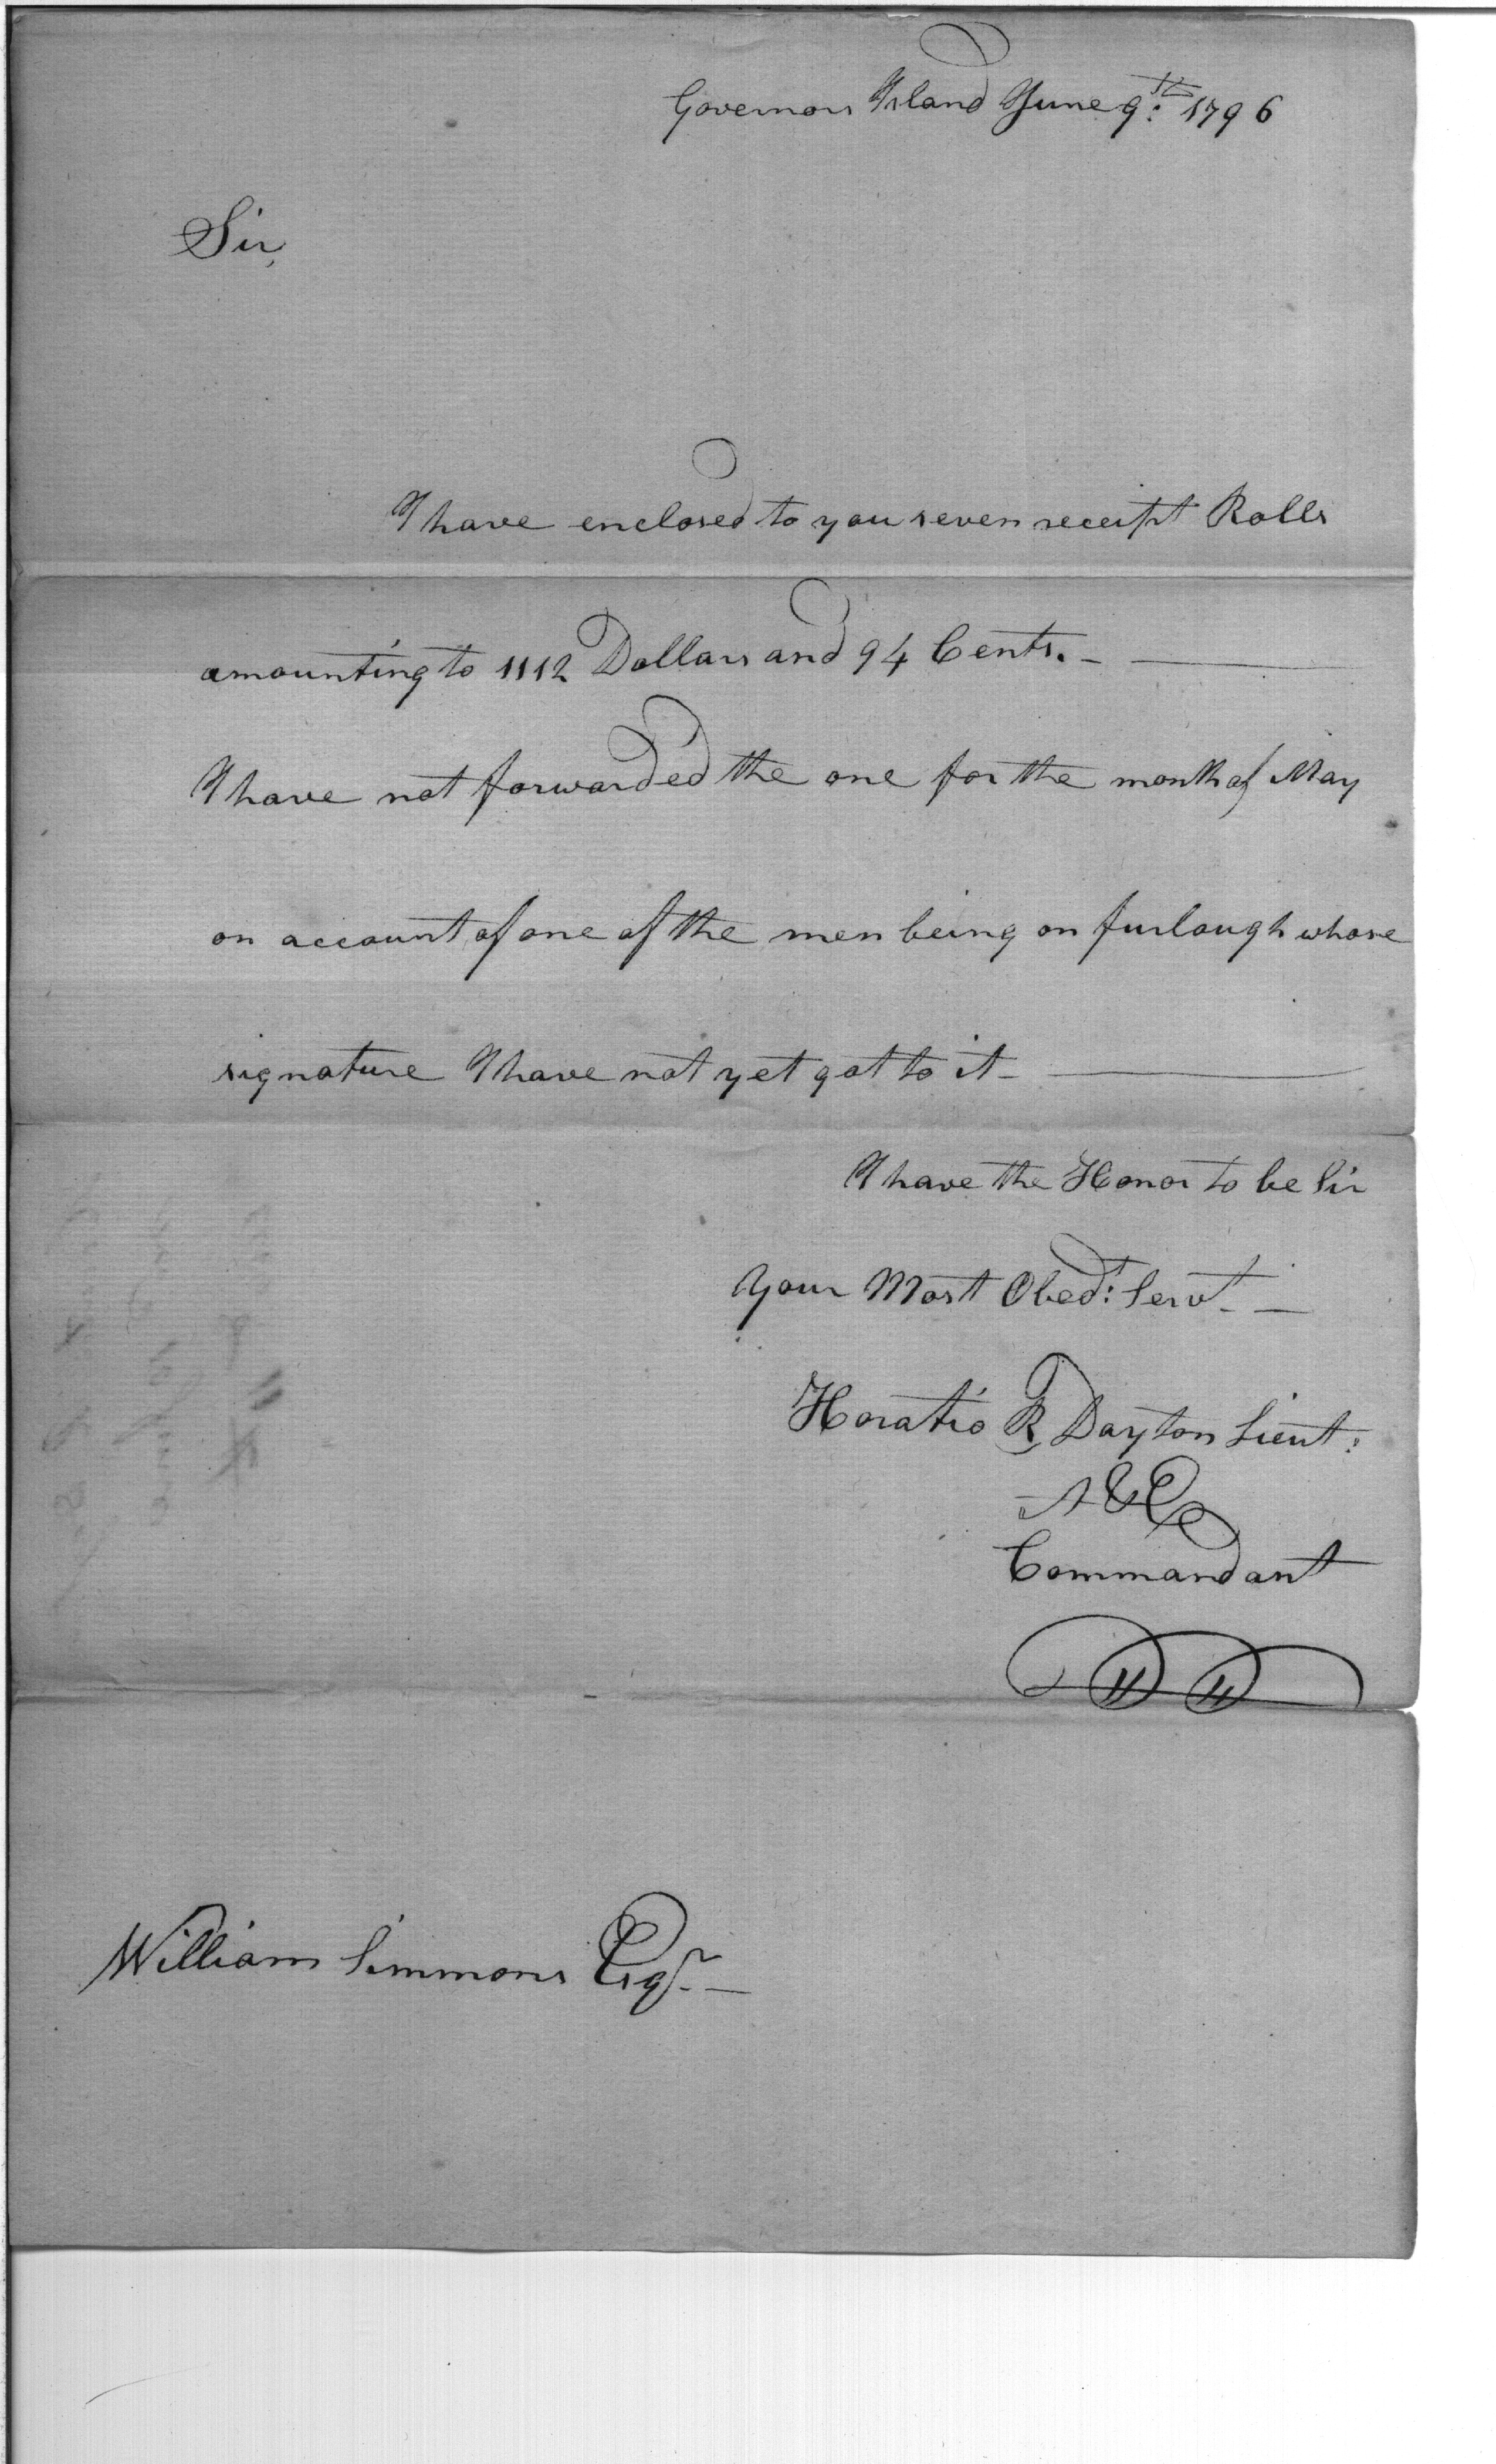 Governors Island June 9th: 1796
Sir,
I have enclosed to you seven receipt Rolls
amounting to 1112 Dollars and 94 Cents. -
I have not forwarded the one for the month of May
on account of one of the men being on furlough whose
signature I have not yet got to it -
I have the Honor to be Sir
Your Most Obedt: Servt - -
Horatio R Dayton Lieut:
A&E
Commandant
William Simmons Esqr. -